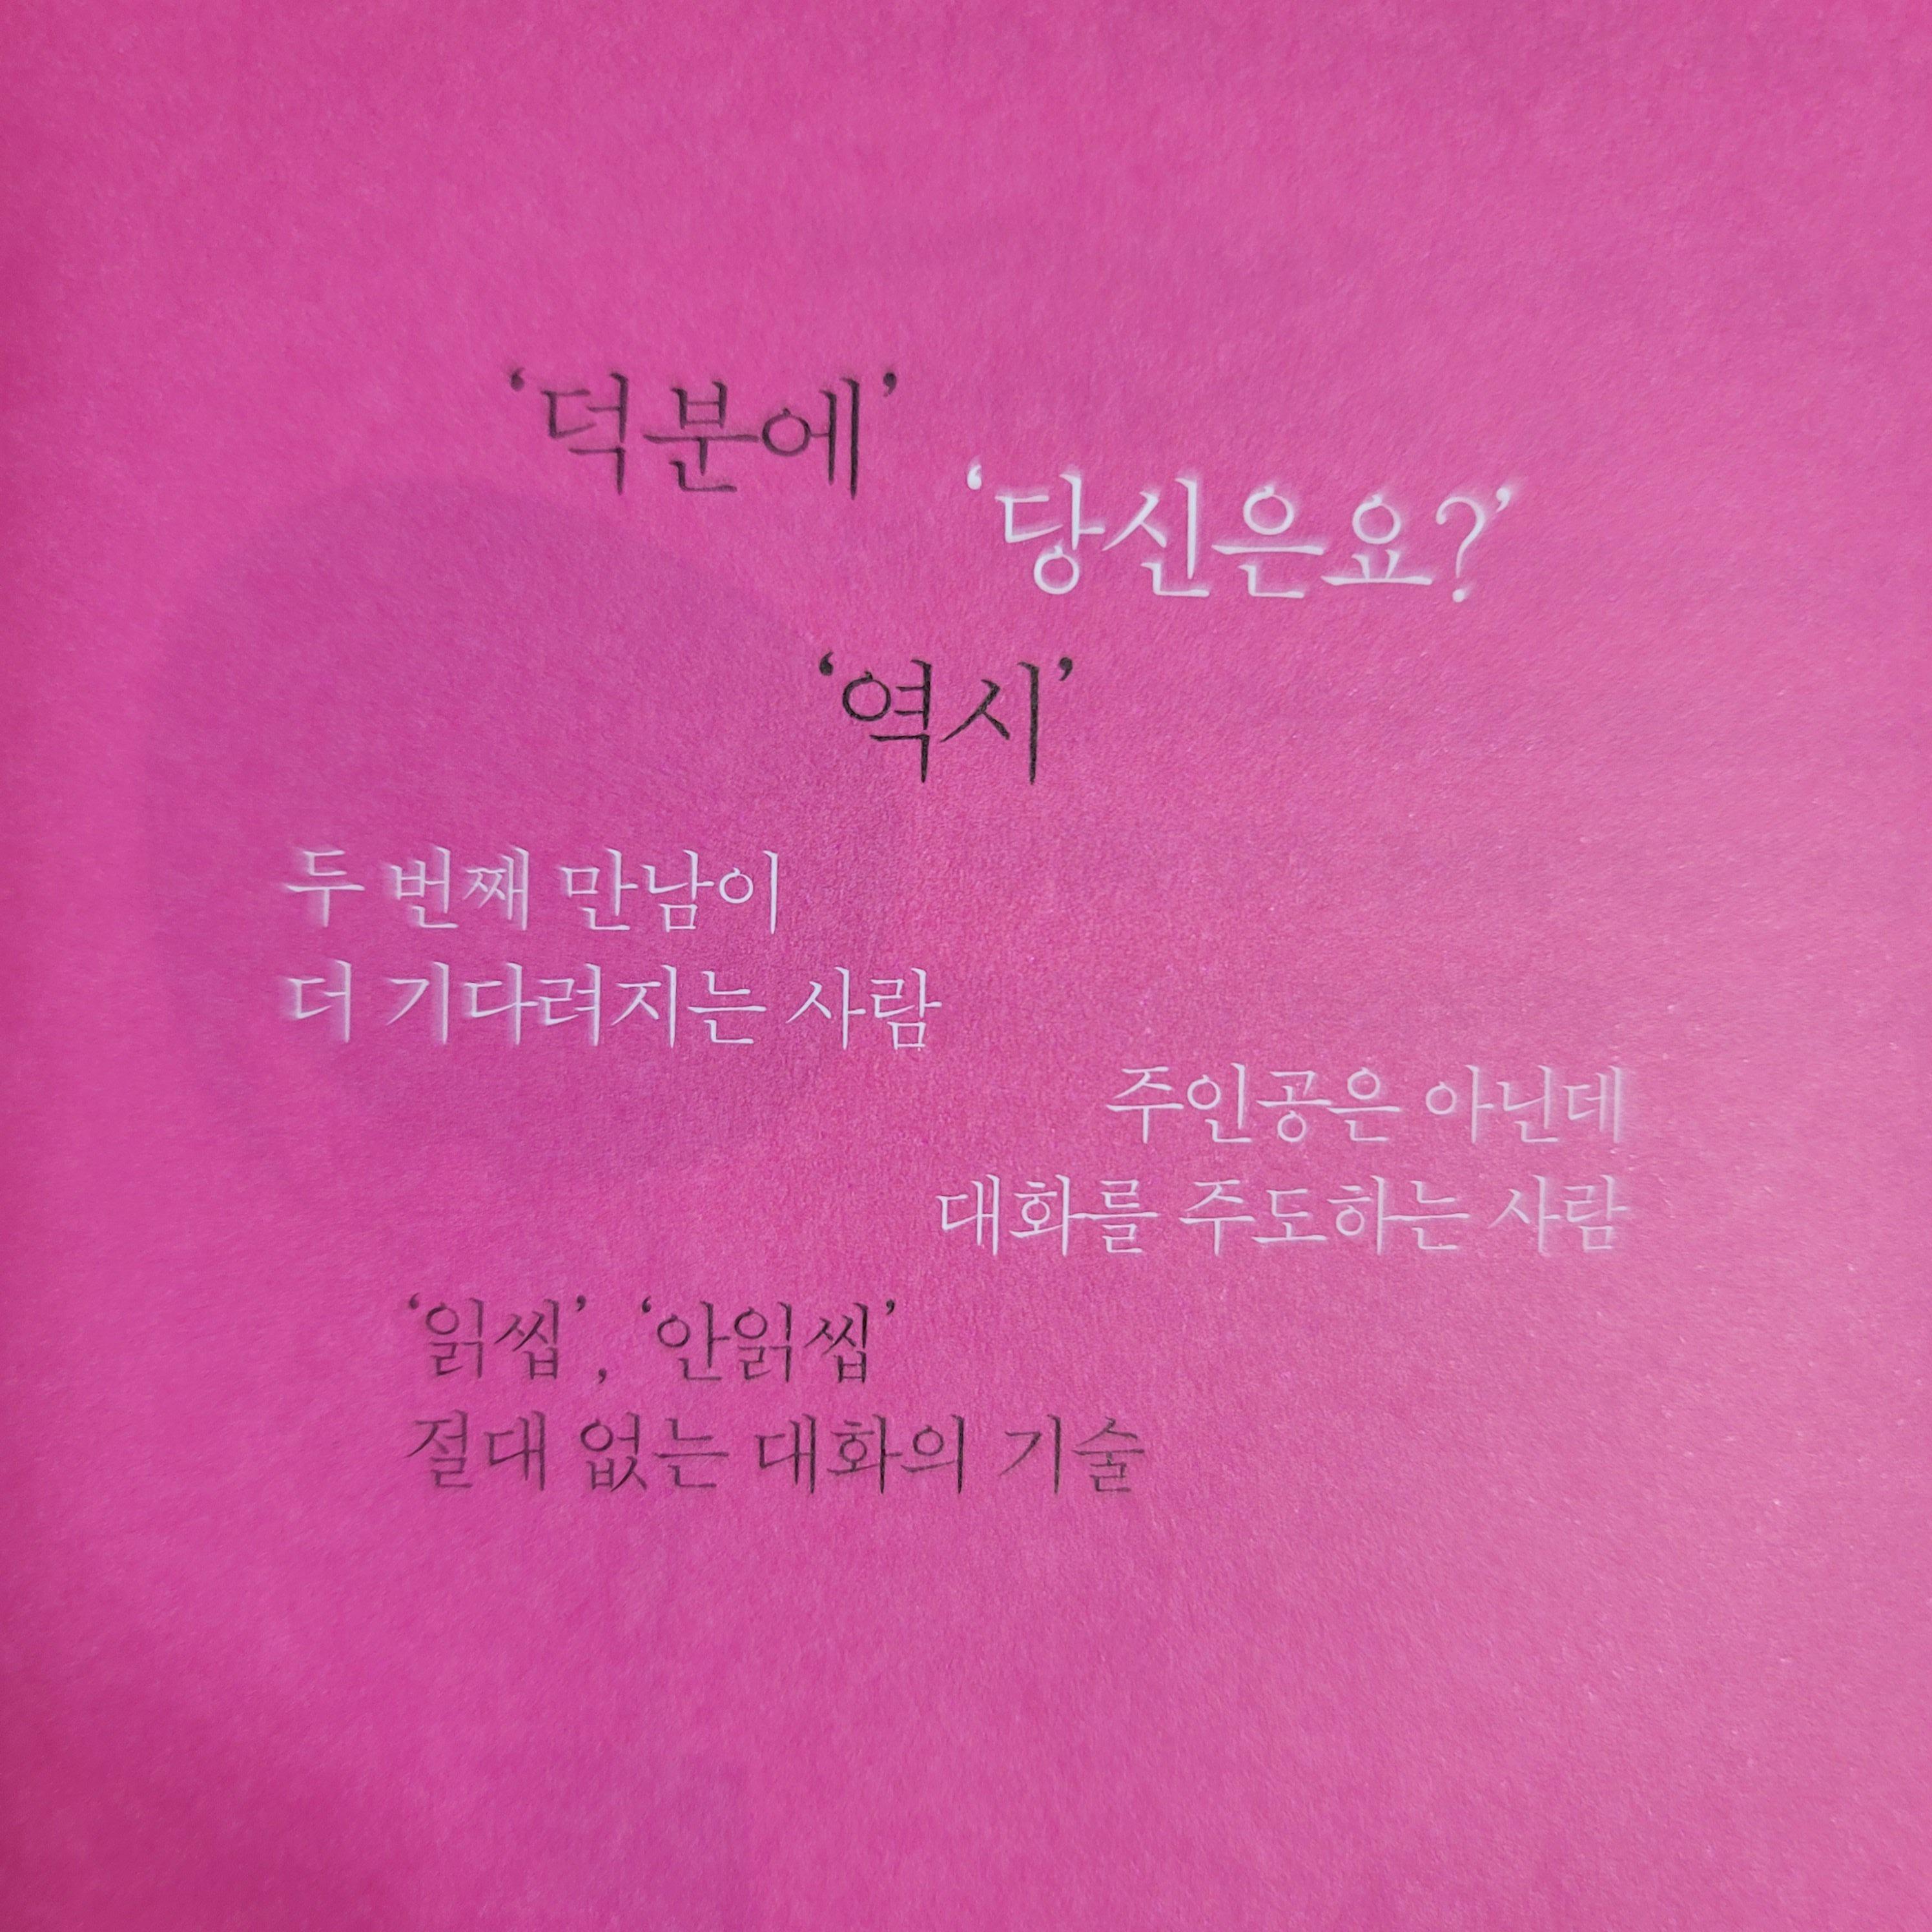 ‘덕분에’
‘당신은요?’
‘역시’
두 번째 만남이
더 기다려지는 사람
주인공은 아닌데
대화를 주도하는 사람
‘읽씹’, ‘안읽씹’
절대 없는 대화의 기술